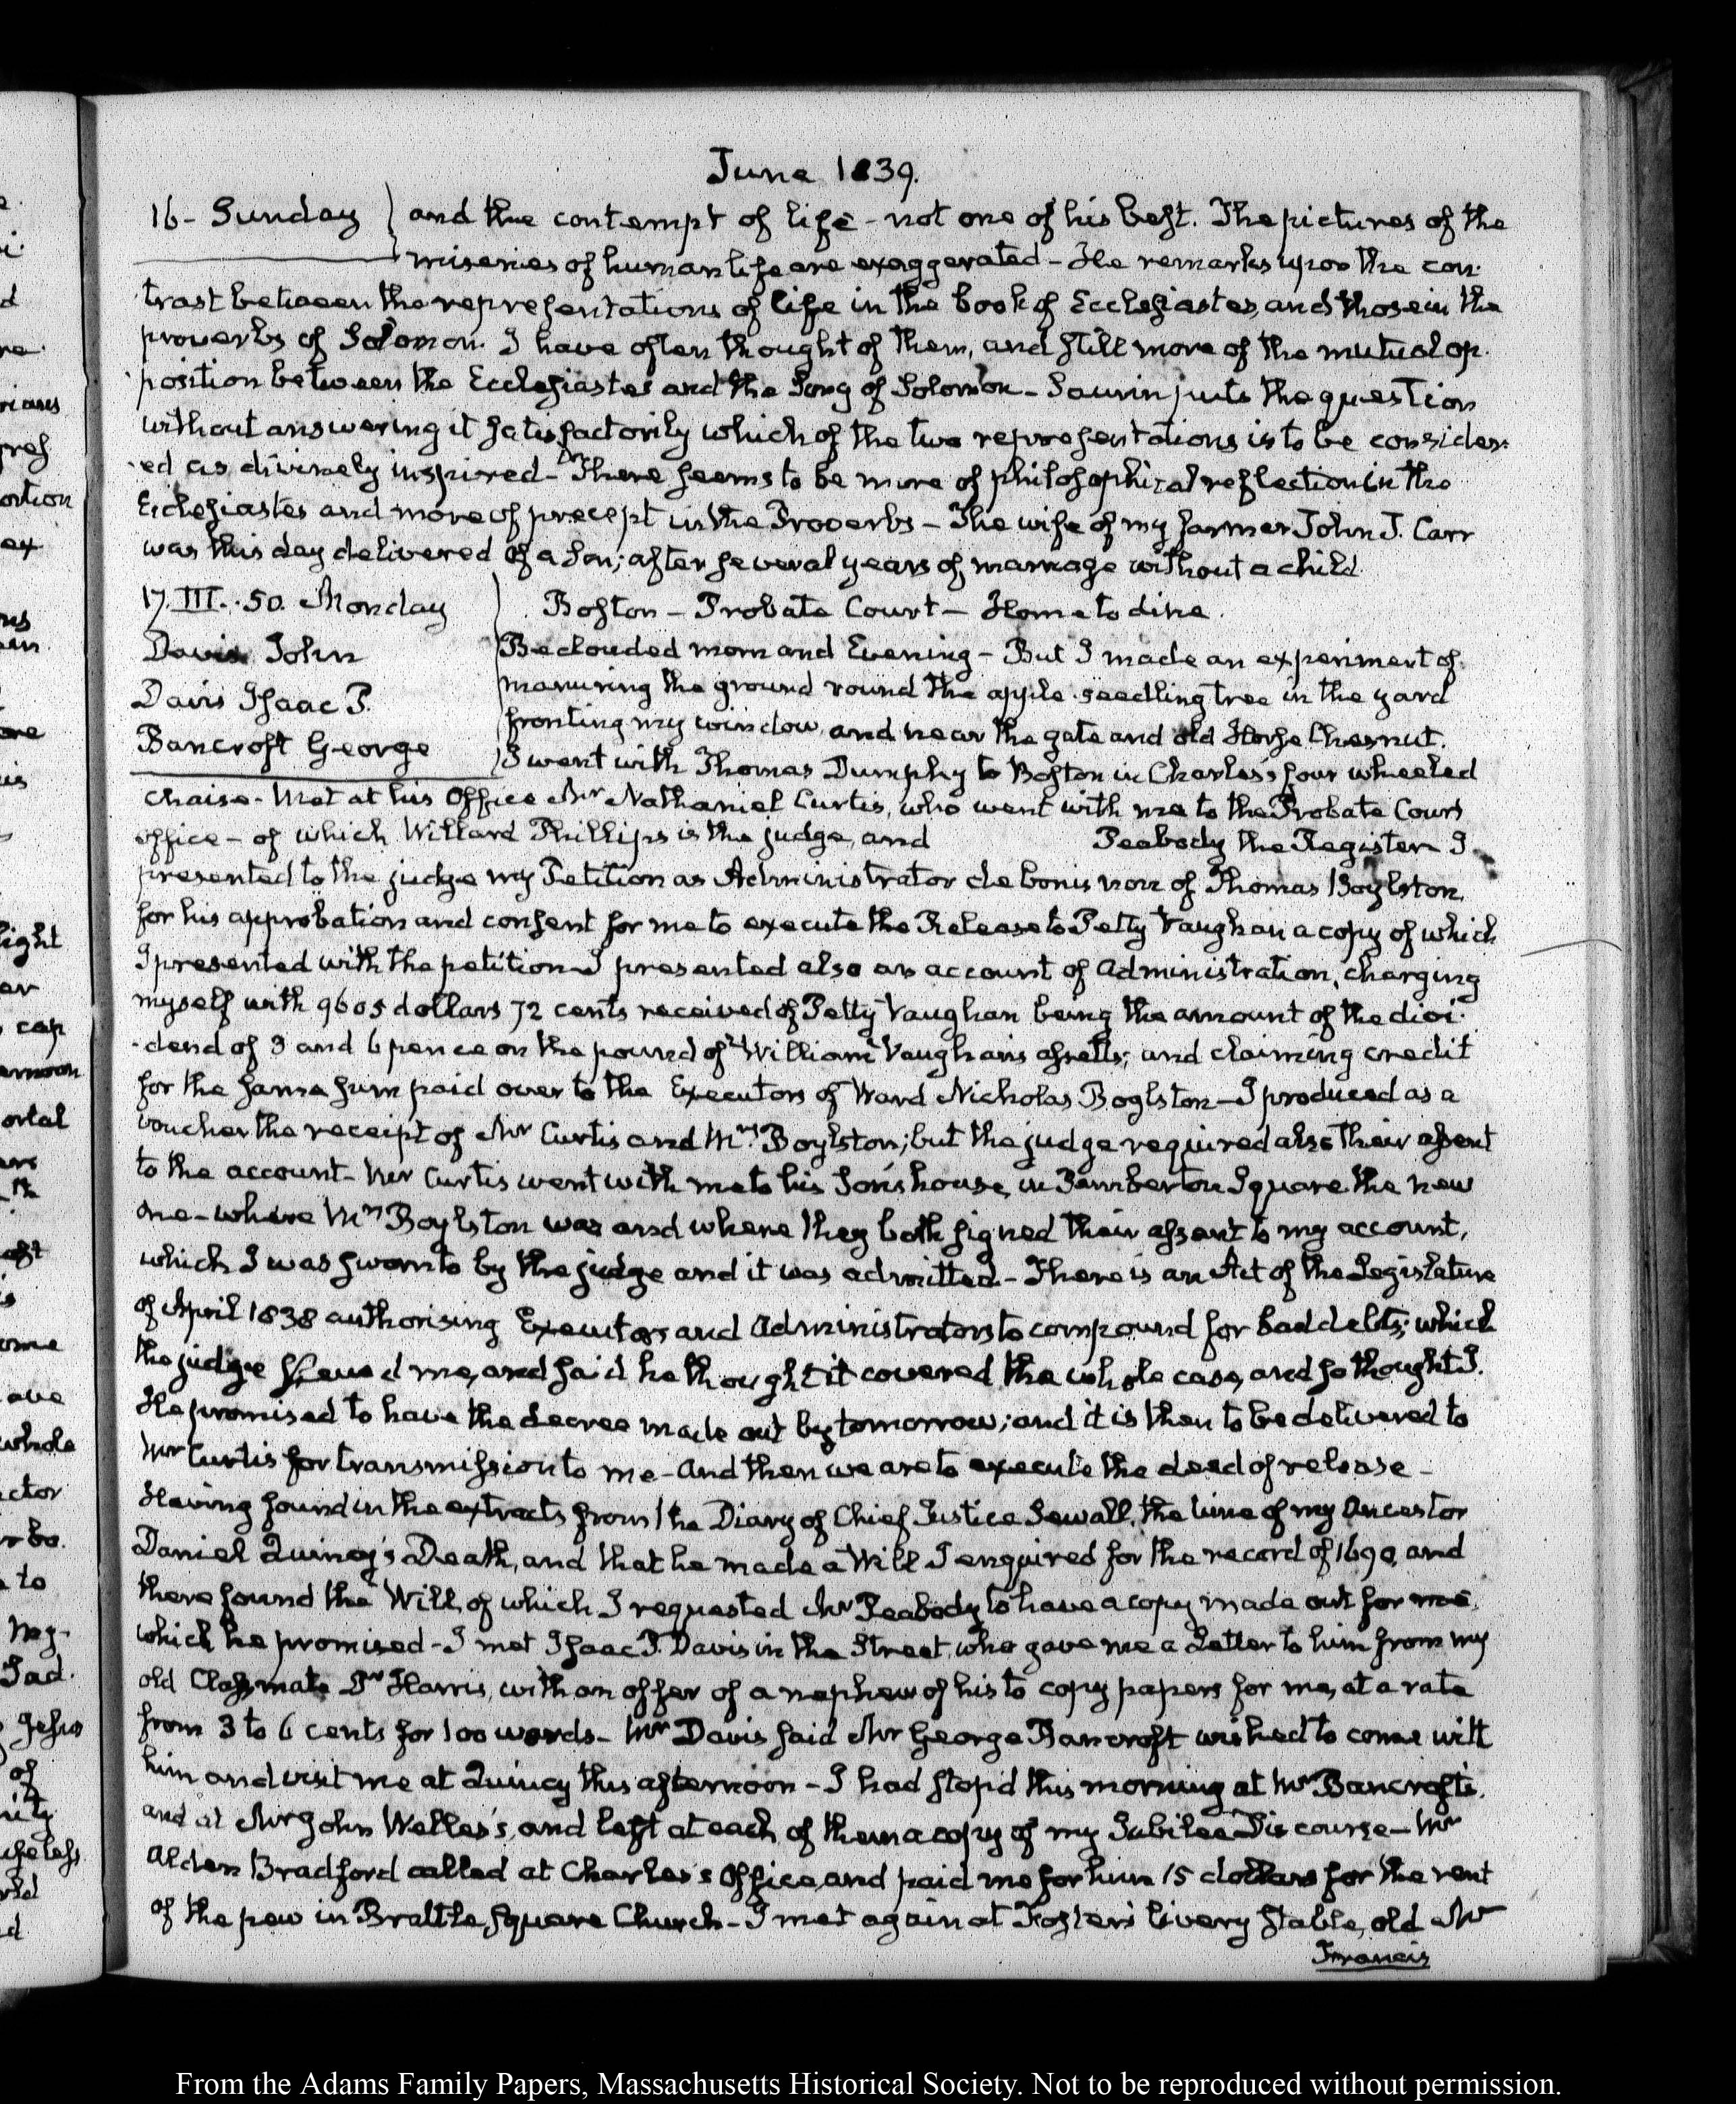 June 1839.
16 - Sunday
and true contempt of life - not one of his best. The pictures of the
miseries of human life are exaggerated - He remarks upon the con-
trast between the representations of life in the book of Ecclesiastes, and those in the
proverbs of Solomon. I have often thought of them, and still more of the mutual op-
position between the Ecclesiastes and the Song of Solomon - Saurin puts the question
without answering it satisfactorily which of the two representations is to be consider-
ed as divinely inspired - There seems to be more of philosophical reflection in the
Ecclesiastes and more of precept in the Proverbs - The wife of my farmer John J. Carr
was this day delivered of a Son; after several years of marriage without a child.
17. III..50. Monday
Davis John
Davis Isaac P.
Bancroft George
Boston - Probate Court - Home to dine.
Beclouded morn and Evening - But I made an experiment of
manuring the ground round the apple seedling tree in the yard
fronting my window, and near the gate and old Horse Chesnut.
I went with Thomas Dumphy to Boston in Charles's four wheeled
Chaise - Met at his Office Mr Nathaniel Curtis, who went with me to the Probate Court
office - of which Willard Phillips is the judge, and Peabody the Register. I
presented to the judge my Petition as Administrator de bonis non of Thomas Boylston
for his approbation and consent for me to execute the Release to Petty Vaughan a copy of which
I presented with the petition - I presented also an account of Administration, charging
myself with 9605 dollars 72 cents received of Petty Vaughan being the amount of the divi-
-dend of 3 and 6 pence on the pound of William Vaughan's assetts; and claiming credit
for the same sum paid over to the Executors of Ward Nicholas Boylston - I produced as a
voucher the receipt of Mr Curtis and Mrs Boylston; but the judge required also their assent
to the account - Mr Curtis went with me to his Son's house, in Pemberton Square the new
one - where Mrs Boylston was and where they both signed their assent to my account,
which I was sworn to by the judge and it was admitted - There is an Act of the Legislature
of April 1838 authorising Executors and Administrators to compound for bad debts; which
the judge shewed me, and said he thought it covered the whole case, and so thought I.
He promised to have the decree made out by tomorrow; and it is then to be delivered to
Mr Curtis for transmission to me - And then we are to execute the deed of release -
Having found in the extracts from the Diary of Chief Justice Sewall, the time of my Ancestor
Daniel Quincy's Death, and that he made a Will I enquired for the record of 1690, and
there found the Will, of which I requested Mr Peabody to have a copy made out for me,
which he promised - I met Isaac P. Davis in the Street, who gave me a Letter to him from my
old Classmate Dr Harris, with an offer of a nephew of his to copy papers for me, at a rate
from 3 to 6 cents for 100 words - Mr Davis said Mr George Bancroft wished to come with
him and visit me at Quincy this afternoon - I had stop'd this morning at Mr Bancroft's,
and at Mr John Welles's, and left at each of them a copy of my Jubilee Discourse - Mr
Alden Bradford called at Charles's Office, and paid me for him 15 dollars for the rent
of the pew in Brattle Square Church - I met again at Foster's livery Stable, old Mr
Francis
From the Adams Family Papers, Massachusetts Historical Society. Not to be reproduced without permission.